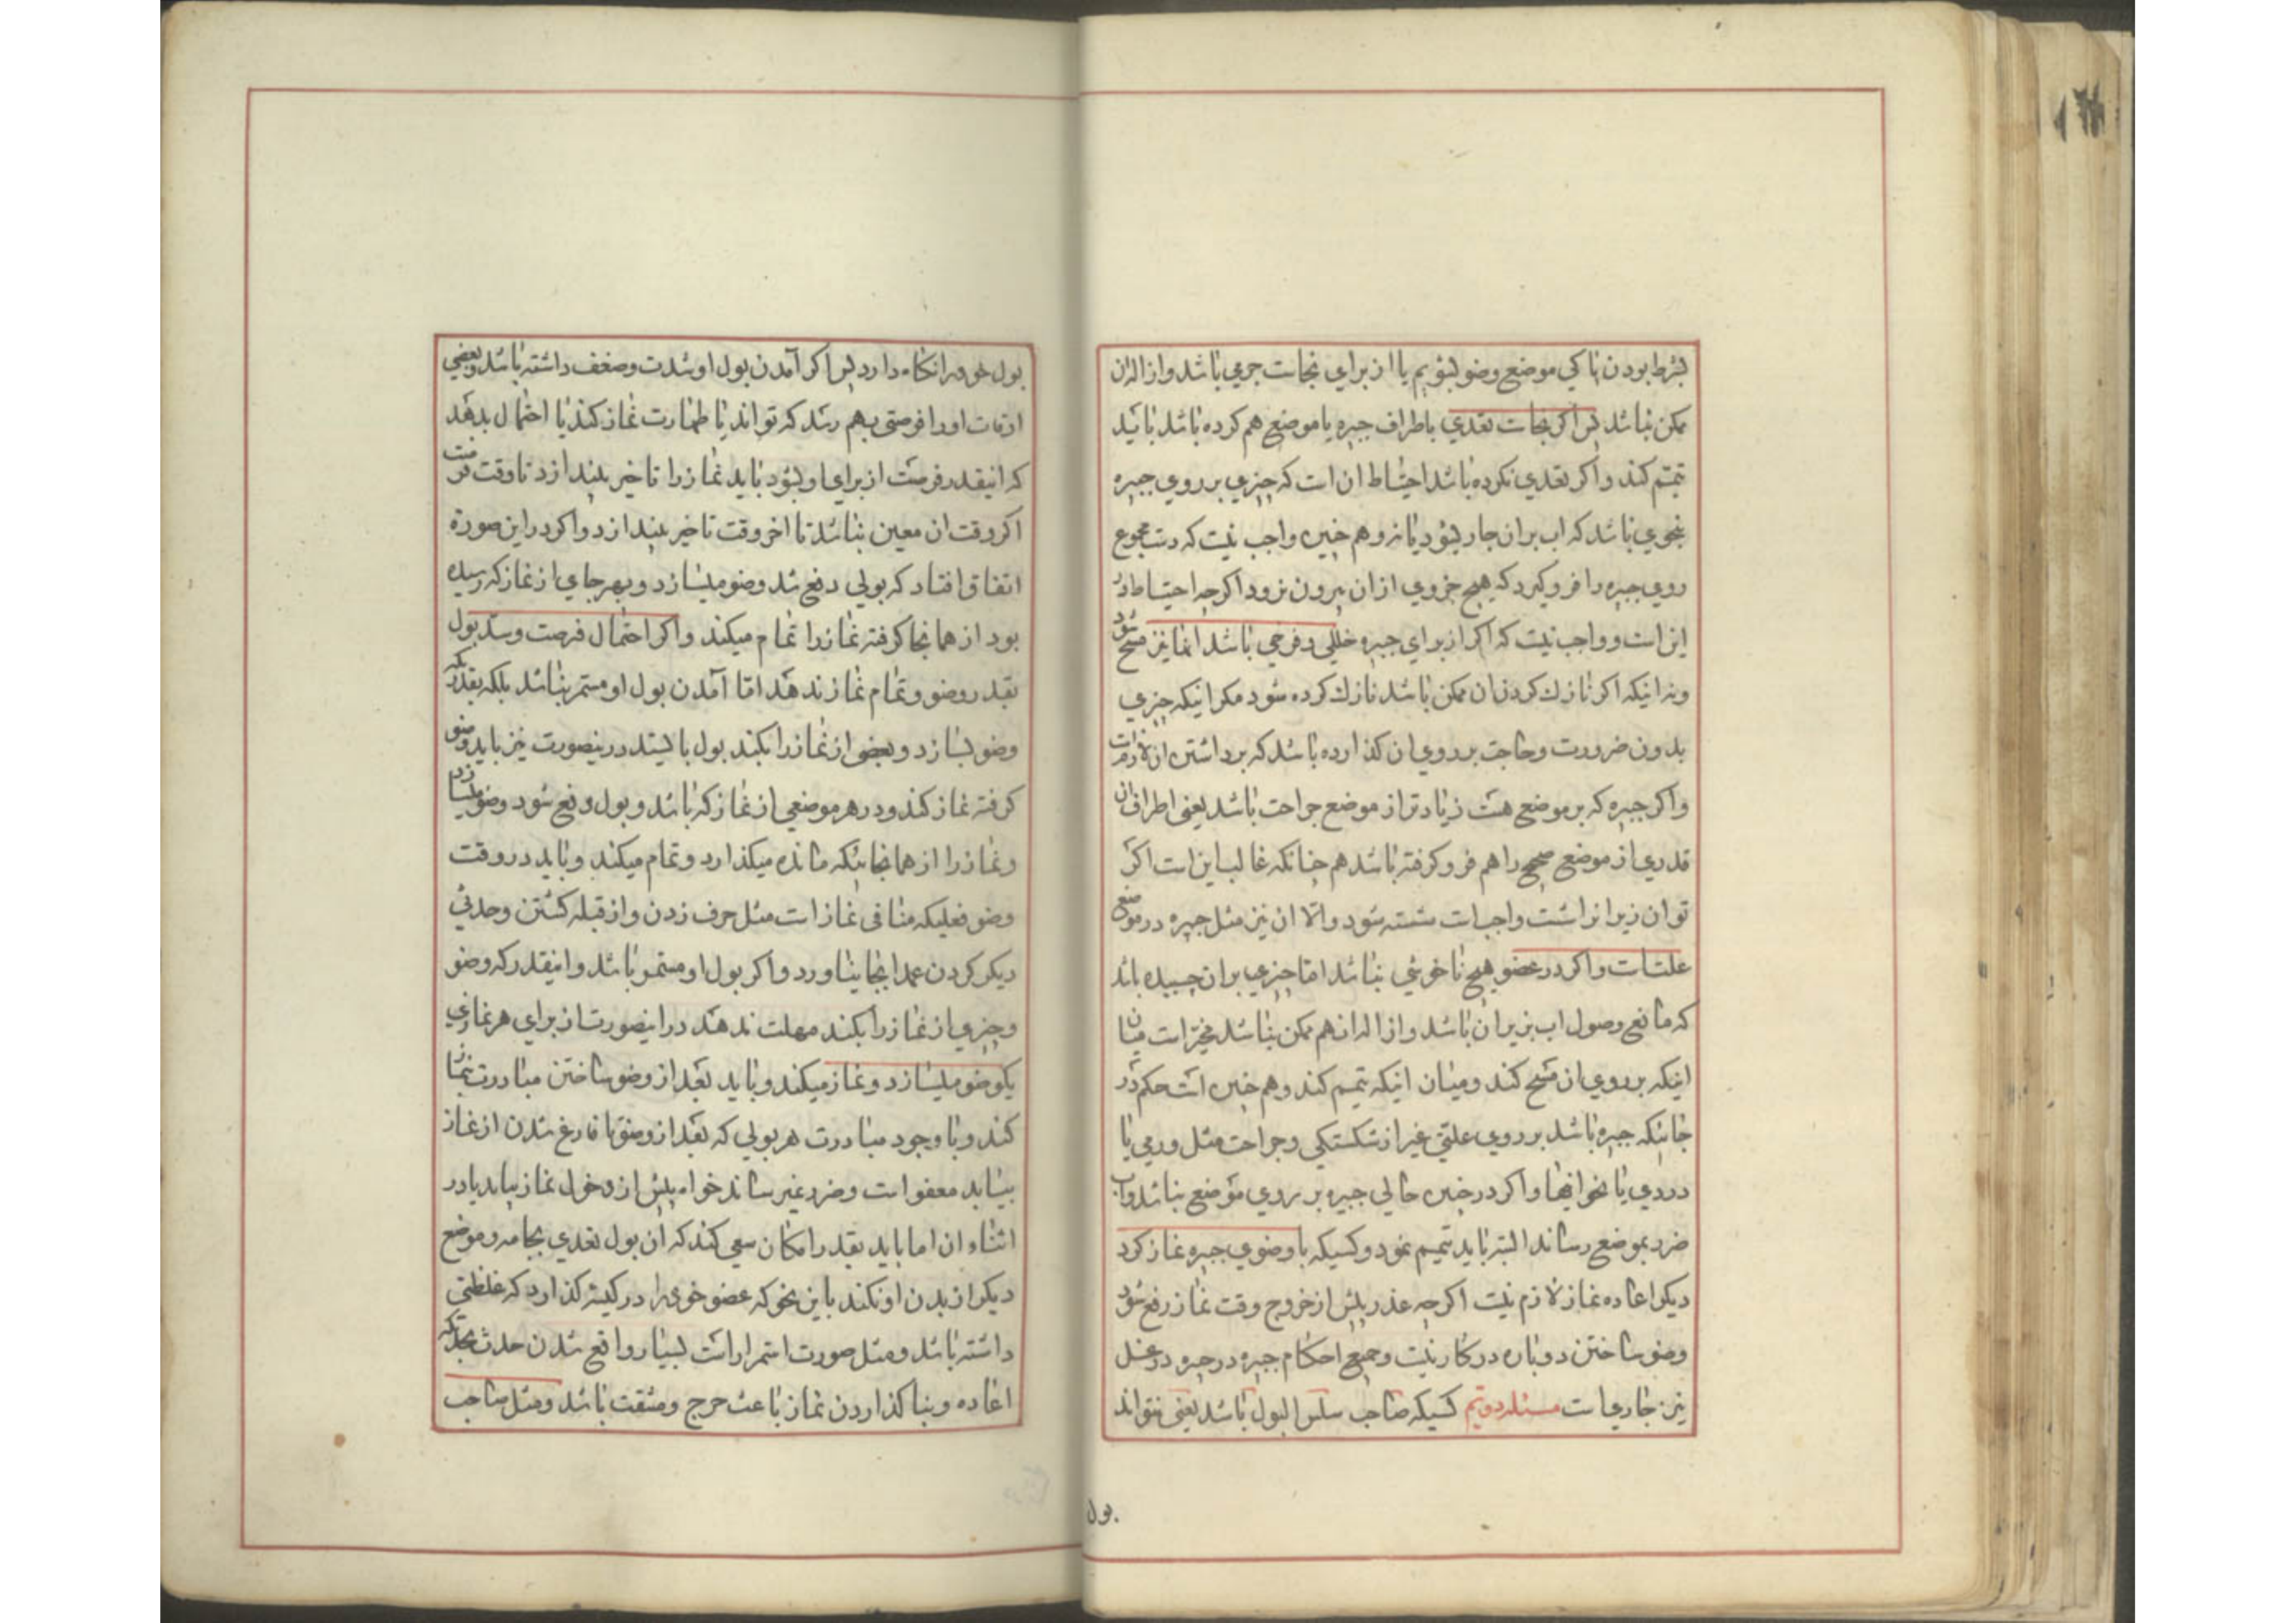 بشرط بودن پاکی موضع وضو بشویم یا از برای نجاست جرمی باشد و ازاله ان
ممکن نباشد پس اگر نجاست تعدی باطراف جبیره یا موضع هم کرده باشد باید
تیمم کند و اگر تعدی نکرده باشد احتیاط ان است که چیزی بر روی جبیره
بنحوی باشد که اب بر ان جاری شود یا نه و هم چنین واجب نیست که دست مجموع
روی جبیره را فرو گیرد که هیچ جزوی از ان بیرون نرود اگرچه احتیاط در
این است و واجب نیست که اگر از برای جبیره خللی و فرجی باشد انها نیز مسح شود
و نه اینکه اگر نازک کردن ان ممکن باشد نازک کرده شود مگر اینکه چیزی
بدون ضرورت و حاجت بر روی ان گذارده باشد که برداشتن ان لازم است
و اگر جبیره که بر موضع هست زیادتر از موضع جراحت باشد یعنی اطراف ان
قدری از موضع صحیح را هم فرو گرفته باشد هم چنانکه غالب این است اگر
توان زیر انرا شست واجب است شسته شود والا ان نیز مثل جبیره در موضع
علت است و اگر در عضو هیچ ناخوشی نباشد اما چیزی بر ان چسبیده باشد
که مانع وصول اب بزیر ان باشد و ازاله ان هم ممکن نباشد مخیر است میان
اینکه بر روی ان مسح کند و میان اینکه تیمم کند و هم چنین است حکم در
جائیکه جبیره باشد بر روی علتی غیر از شکستگی و جراحت مثل ورمی یا
دردی یا نحو انها و اگر در چنین حالی جبیره بر روی موضع نباشد و اب
ضرر بموضع رساند البته باید تیمم نمود و کسیکه با وضوی جبیره نماز کرد
دیگر اعاده نماز لازم نیست اگرچه عذر پیش از خروج وقت نماز رفع شود
وضو ساختن دوباره در کار نیست و جمیع احکام جبیره در جبیره در غسل
نیز جاری است مسئله دویم کسیکه صاحب سلس البول باشد یعنی نتواند
بول
بول خود را نگاه دارد پس اگر آمدن بول او شدت و ضعف داشته باشد و بعضی
اوقات او را فرصتی بهم رسد که تواند با طهارت نماز کند یا احتمال بدهد
که اینقدر فرصت از برای او بشود باید نماز را تاخیر بیندازد تا وقت فرصت
اگر وقت ان معین نباشد تا اخر وقت تاخیر بیندازد و اگر در این صورة
اتفاق افتاد که بولی دفع شد وضو میسازد و بهر جای از نماز که رسیده
بود از همانجا گرفته نماز را تمام میکند و اگر احتمال فرصت و سد بول
بقدر وضو و تمام نماز ندهد اما آمدن بول او مستمر نباشد بلکه بقدریکه
وضو بسازد و بعضی از نماز را بکند بول بایستد درینصورت نیز باید وضو
گرفته نماز کند و در هر موضعی از نماز که باشد و بول دفع شود وضو میسازد
و نماز را از همانجائیکه مانده میگذارد و تمام میکند و باید در وقت
وضو فعلیکه منافی نماز است مثل حرف زدن و از قبله گشتن و حدثی
دیگر کردن عمدا بجا نیاورد و اگر بول او مستمر باشد و اینقدر که وضو
و چیزی از نماز را بکند مهلت ندهد در اینصورت از برای هر نمازی
یکوضو میسازد و نماز میکند و باید بعد از وضو ساختن مبادرت بنماز
کند و با وجود مبادرت هر بولی که بعد از وضو تا فارغ شدن از نماز
بیاید معفو است و ضرر نمیرساند خواه پیش از دخول نماز بیاید یا در
اثناء ان اما باید بقدر امکان سعی کند که ان بول تعدی بجامه و موضع
دیگر از بدن او نکند باین نحو که عضو خود را در کیسه گذارد که غلظتی
داشته باشد و مثل صورت استمرار است بسیار واقع شدن حدث بحدیکه
اعاده و بنا گذاردن نماز باعث حرج و مشقت باشد و مثل صاحب